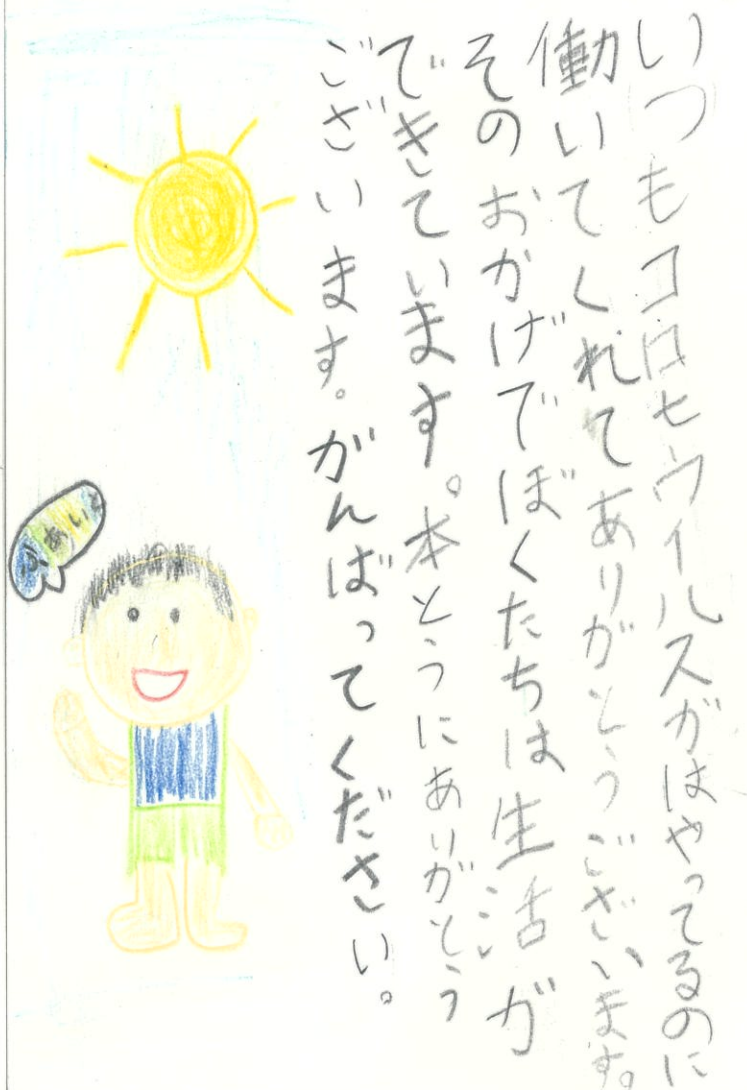 いつもコロセウイルスがはやってるのに
働いてくれてありがとうございます。
そのおかげでぼくたちは生活が
できています。本とうにありがとう
ございます。がんばってください。
ふぁいと